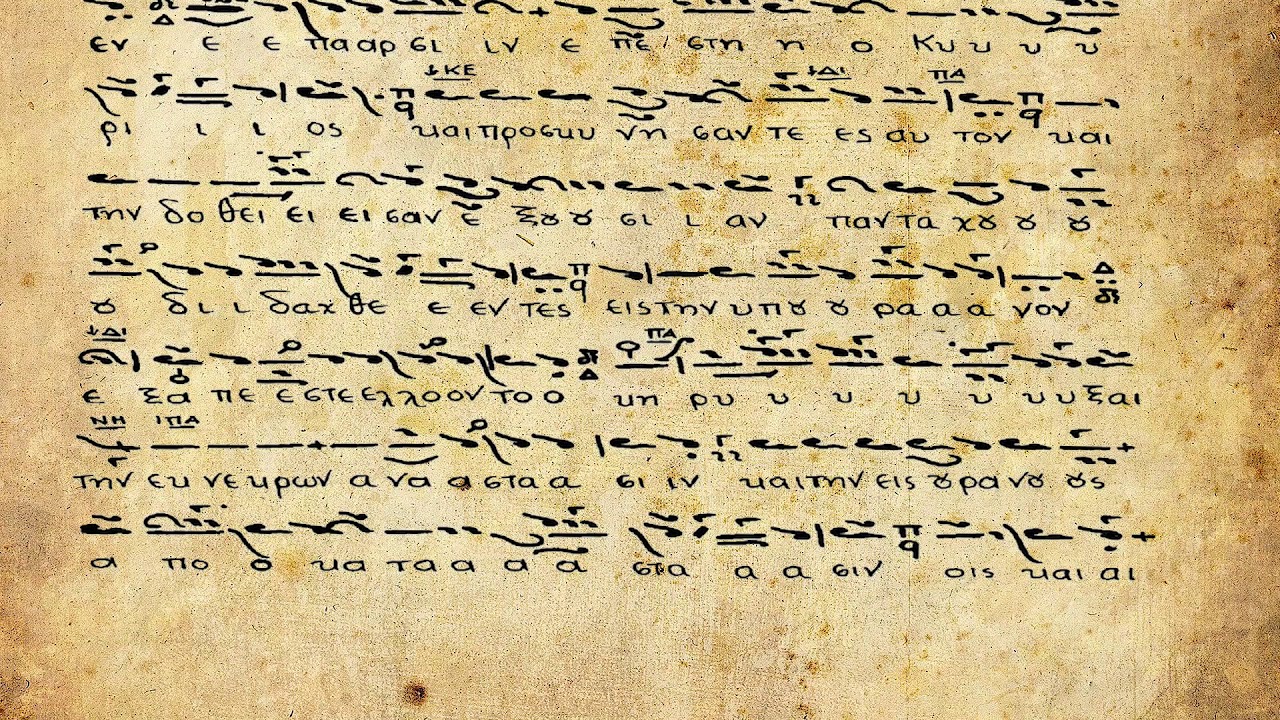 εν ε ε πααρ σι ιν ε πε στη η ο Κυ υ υ υ
ΚΕ ΔΙ ΠΑ
ρι ι ι ος και προσκυ νη σαν τε ες αυ τον και
την δο θει ει ει σαν ε ξȣ ȣ σι ι αν παν τα χȣ ȣ ȣ
ȣ δι ι δαχ θε ε εν τες εις την υπȣ ȣ ρα α α νον
ΔΙ ΠΑ
ε ξα πε ε στε ελλο ον το ο κη ρυ υ υ υ υ υ υ ξαι
ΝΗ ΠΑ
την εκ νε κρων α να α στα α σι ιν και την εις ȣ ρα νȣ ȣς
α πο ο κα τα α α α στα α α σιν οις και αι